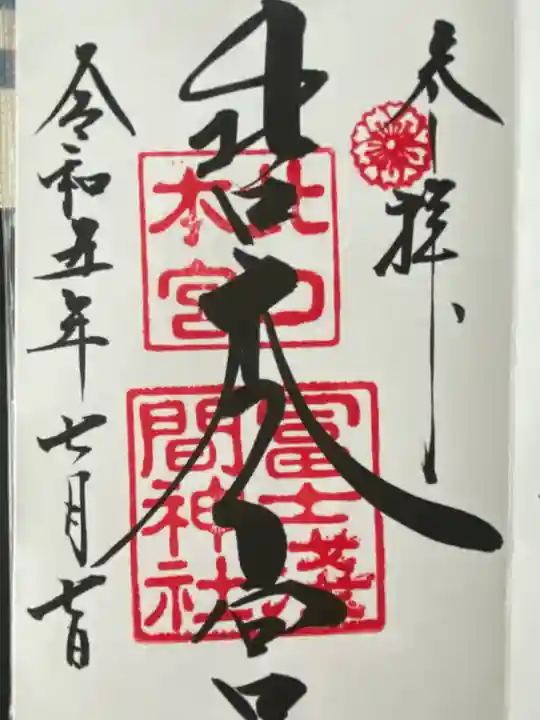 奉拝
北口本宮
北口
本宮
冨士淺
間神社
令和五年七月七日